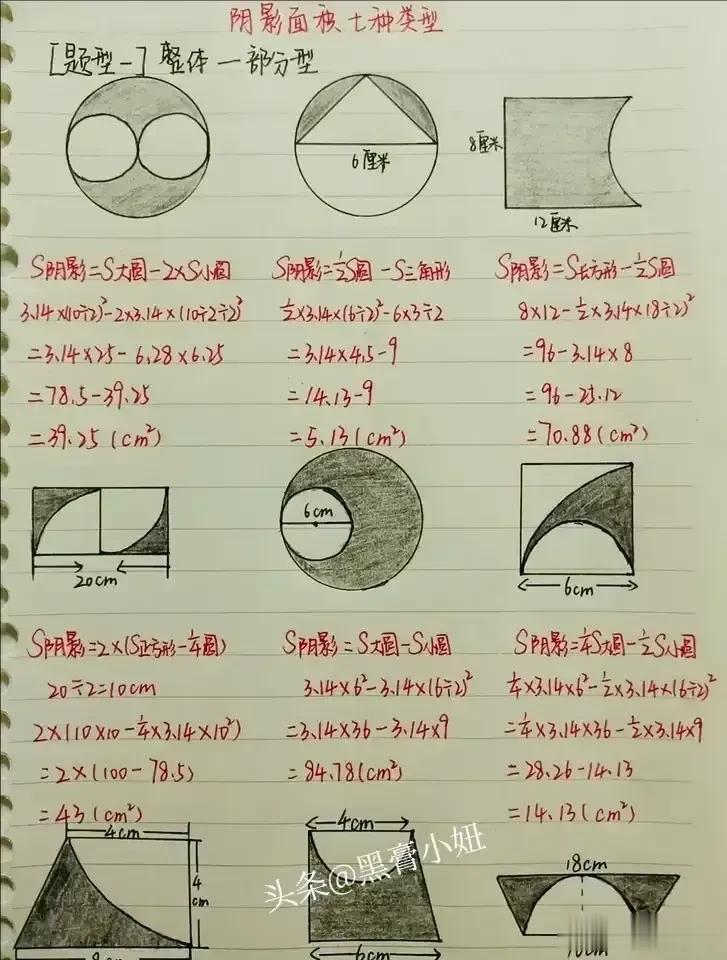 阴影面积七种类型
[题型一] 整体一部分型
6厘米
8厘米
12厘米
S阴影=S大圆-2×S小圆
3.14×(10÷2)²-2×3.14×(10÷2÷2)²
=3.14×25-6.28×6.25
=78.5-39.25
=39.25(cm²)
S阴影=½S圆-S三角形
½×3.14×(6÷2)²-6×3÷2
=3.14×4.5-9
=14.13-9
=5.13(cm²)
S阴影=S长方形-½S圆
8×12-½×3.14×(8÷2)²
=96-3.14×8
=96-25.12
=70.88(cm²)
20cm
6cm
6cm
S阴影=2×(S正方形-¼圆)
20÷2=10cm
2×(10×10-¼×3.14×10²)
=2×(100-78.5)
=43(cm²)
S阴影=S大圆-S小圆
3.14×6²-3.14×(6÷2)²
=3.14×36-3.14×9
=84.78(cm²)
S阴影=¼S大圆-½S小圆
¼×3.14×6²-½×3.14×(6÷2)²
=¼×3.14×36-½×3.14×9
=28.26-14.13
=14.13(cm²)
4cm
4cm
4cm
6cm
18cm
10cm
头条@黑膏小妞